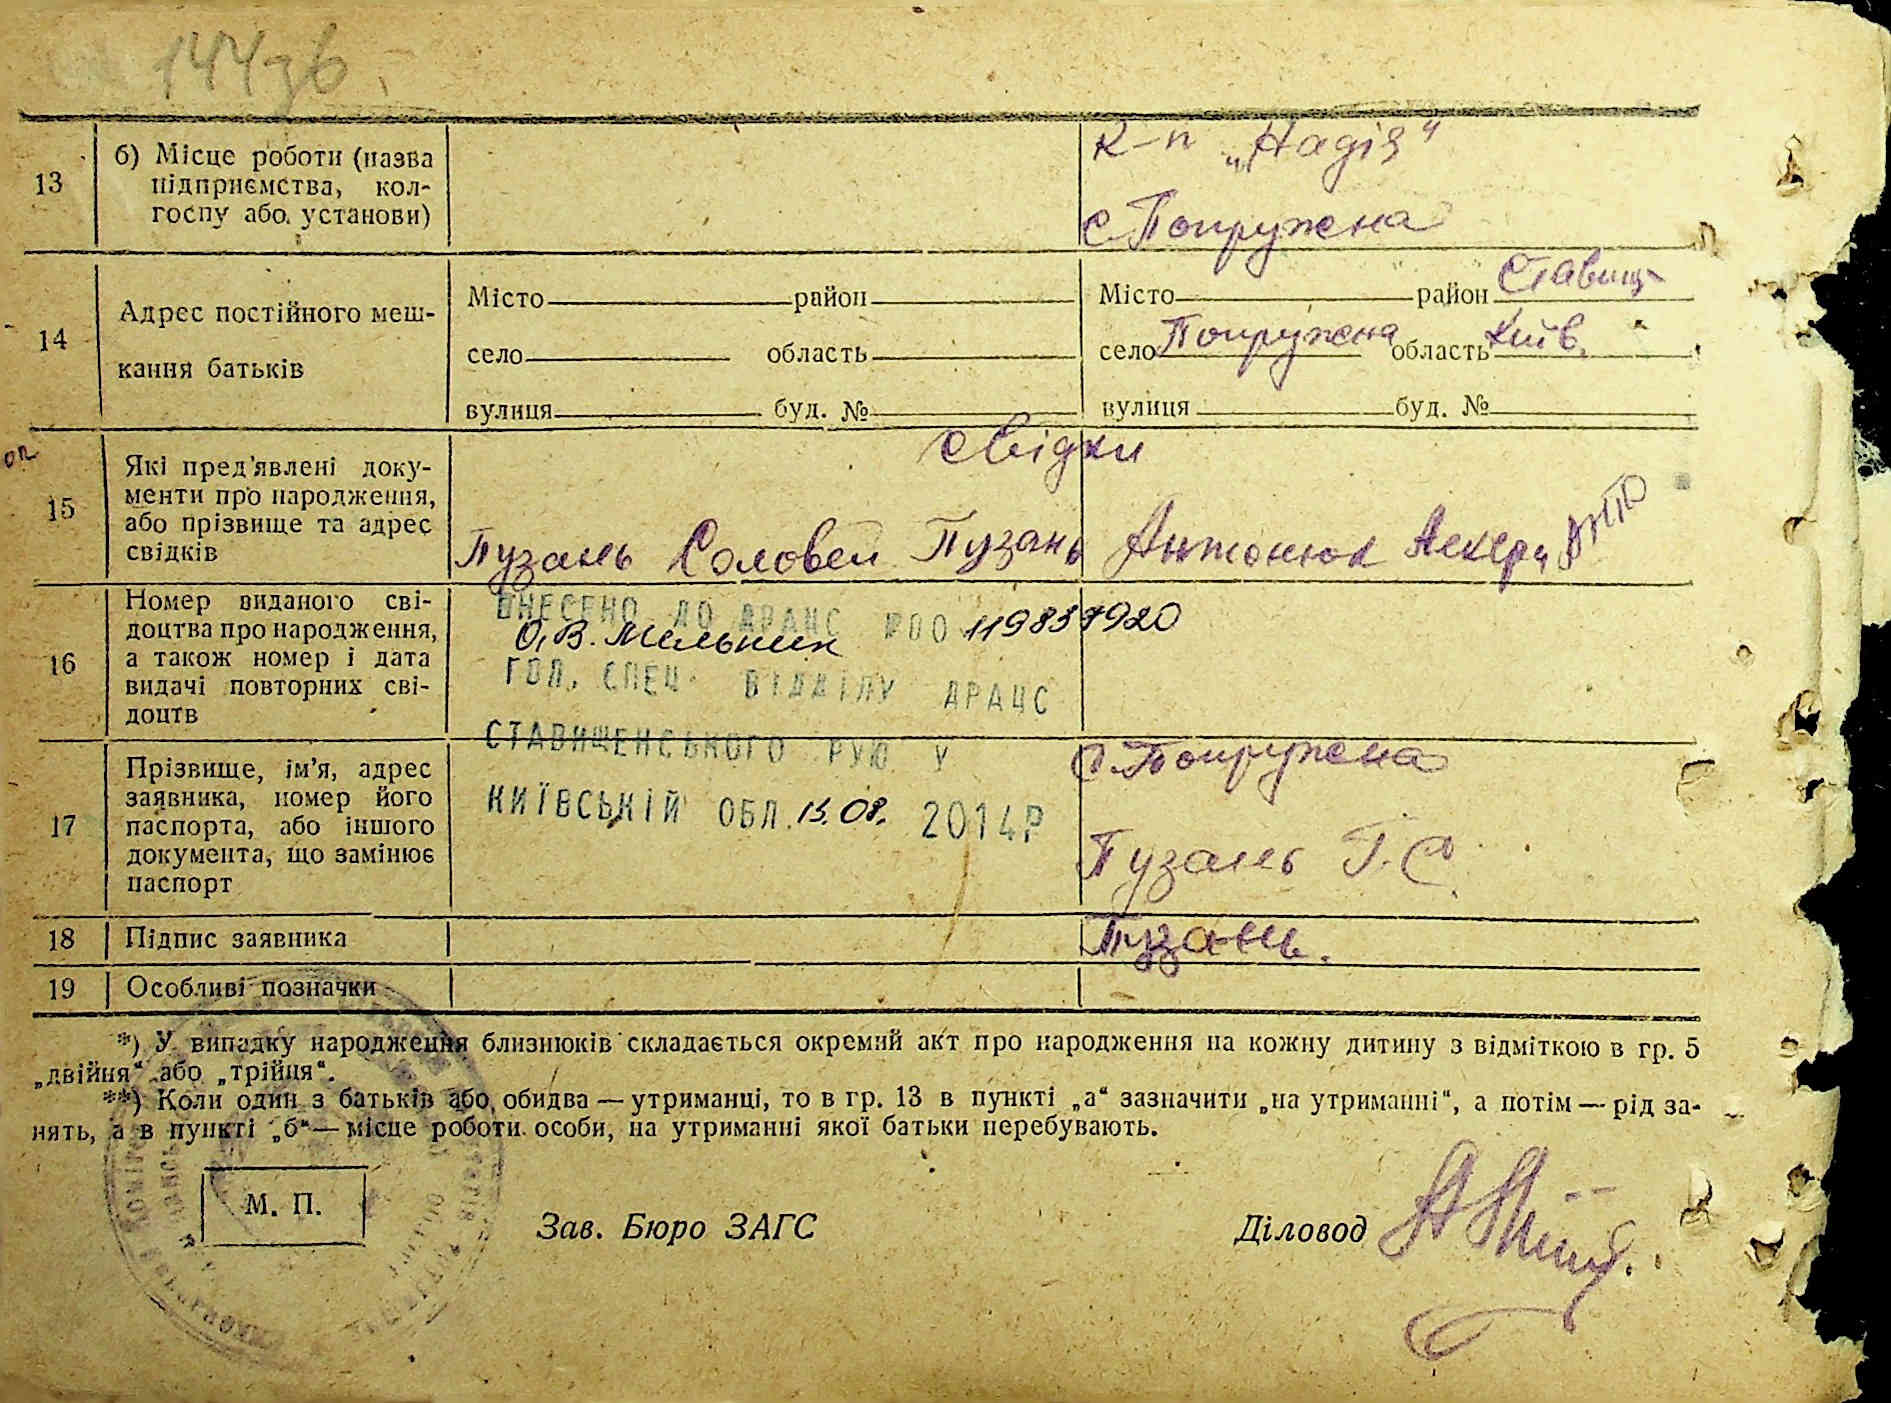 144зв.
13
б) Місце роботи (назва
підприємства, кол-
госпу або установи)
К-п „Надія"
с. Попружена
14
Адрес постійного меш-
кання батьків
Місто район
село область
вулиця буд. №
Місто район Ставищ
село Попружена область Київ.
вулиця буд. №
15
Які пред'явлені доку-
менти про народження,
або прізвище та адрес
свідків
свідки
Пузань Соловей Пузань Антонюк
16
Номер виданого сві-
доцтва про народження,
а також номер і дата
видачі повторних сві-
доцтв
ВНЕСЕНО ДО ДРАЦС №00119837920
О.В. Мельник
ГОЛ. СПЕЦ. ВІДДІЛУ ДРАЦС
СТАВИЩЕНСЬКОГО РУЮ У
КИЇВСЬКІЙ ОБЛ. 15.08. 2014Р
17
Прізвище, ім'я, адрес
заявника, номер його
паспорта, або іншого
документа, що замінює
паспорт
с. Попружена
Пузань Г. С.
18
Підпис заявника
Пузань.
19
Особливі позначки
*) У випадку народження близнюків складається окремий акт про народження на кожну дитину з відміткою в гр. 5
„двійня" або „трійця".
**) Коли один з батьків або обидва — утриманці, то в гр. 13 в пункті „а" зазначити „на утриманні", а потім — рід за-
нять, а в пункті „б" — місце роботи особи, на утриманні якої батьки перебувають.
М. П.
Зав. Бюро ЗАГС
Діловод